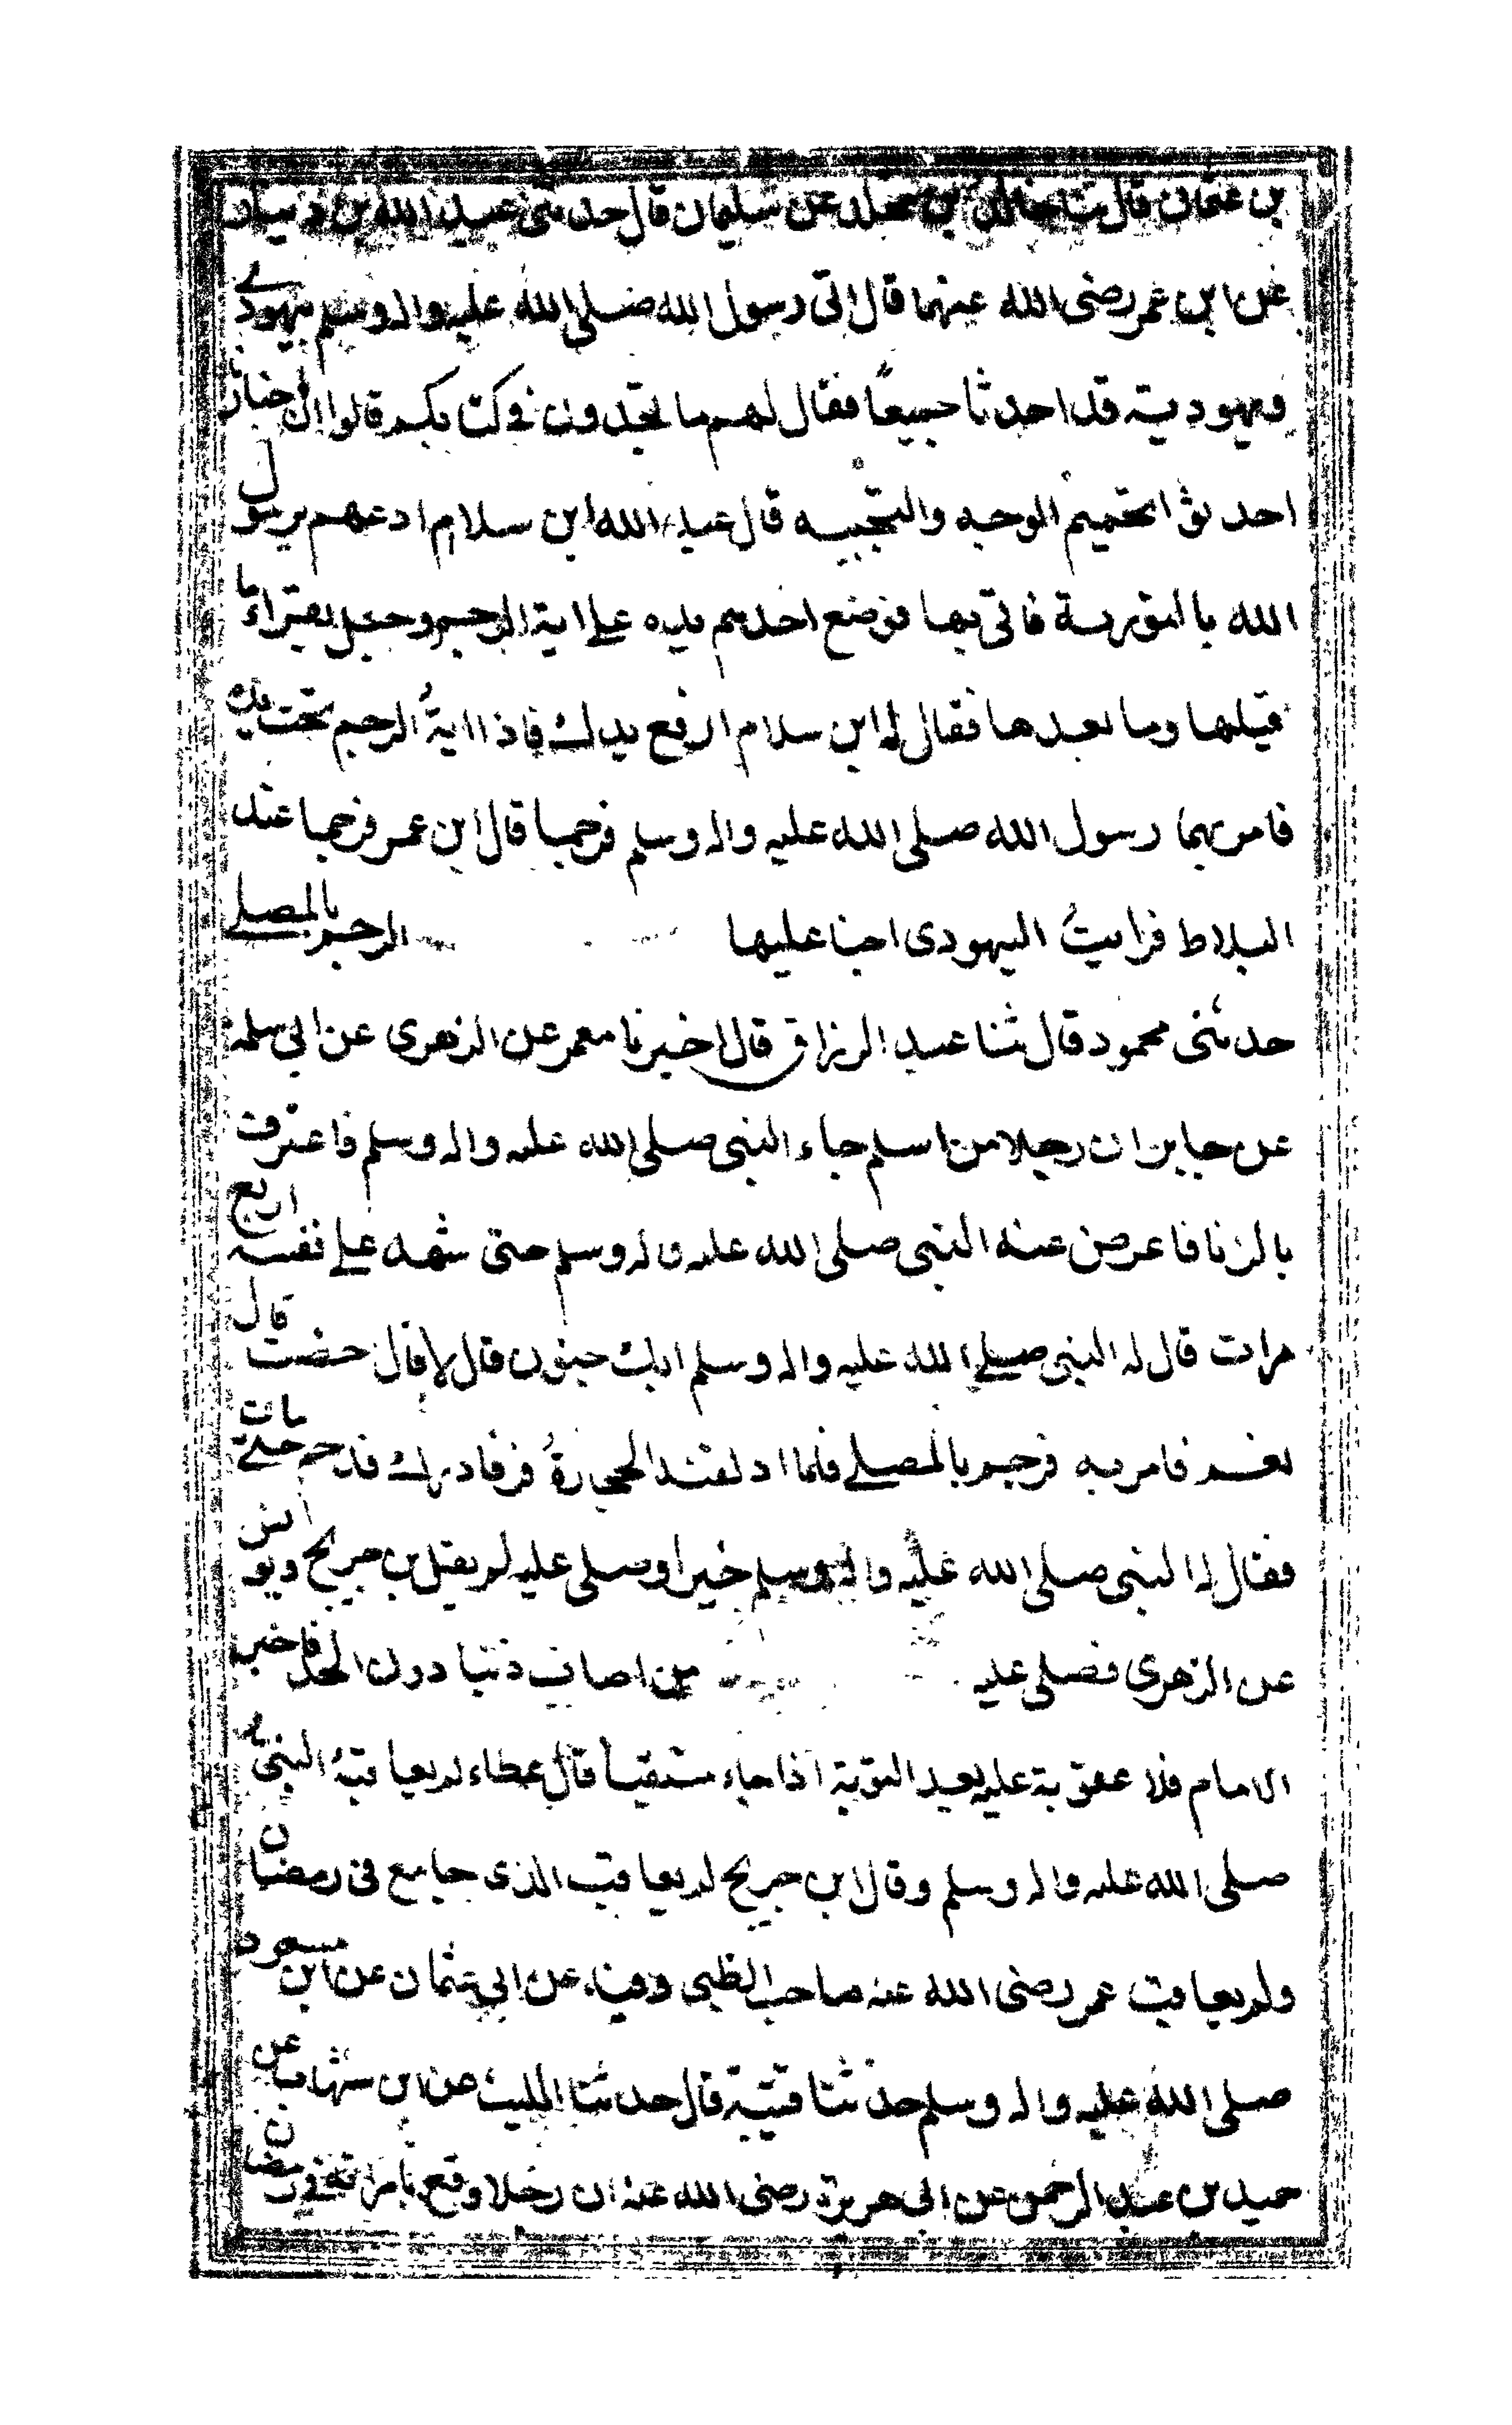 بن عثمان قال ثنا خالد بن مخلد عن سليمان قال حدثنى عبد الله بن دينار
عن ابن عمر رضى الله عنهما قال اتى رسول الله صلى الله عليه واله وسلم بيهودى
ويهودية قد احدثا جميعا فقال لهم ما تجدون فى كتابكم قالوا ان احبارنا
احدثوا تحميم الوجه والتجبيه قال عبد الله ابن سلام ادعهم يرسول
الله بالتورية فاتى بها فوضع احدهم يده على اية الرجم وجعل يقراء ما
قبلها وما بعدها فقال له ابن سلام ارفع يدك فاذا اية الرجم تحت يده
فامر بهما رسول الله صلى الله عليه واله وسلم فرجما قال ابن عمر فرجما عند
البلاط فرايتُ اليهودى اجنا عليها الرجم بالمصلى
حدثنى محمود قال ثنا عبد الرزاق قال اخبرنا معمر عن الزهرى عن ابى سلمة
عن جابر ان رجلا من اسلم جاء النبى صلى الله عليه واله وسلم فاعترف
بالزنا فاعرض عنه النبى صلى الله عليه واله وسلم حتى شهد على نفسه اربع
مرات قال له النبى صلى الله عليه واله وسلم ابك جنون قال لا قال احصنت قال
نعم فامر به فرجم بالمصلى فلما اذلقته الحجارةُ فر فادرك فرجم حتى مات
فقال له النبى صلى الله عليه واله وسلم خيرا وصلى عليه لم يقل بن جريج ويونس
عن الزهرى فصلى عليه من اصاب ذنبا دون الحد فاخبر
الامام فلا عقوبة عليه بعد التوبة اذا جاء مستفتيا قال عطاء لم يعاقبهُ النبى
صلى الله عليه واله وسلم وقال ابن جريج لم يعاقب الذى جامع فى رمضان
ولم يعاقب عمر رضى الله عنه صاحب الظبى وفيه عن ابى عثمان عن ابن مسعود
صلى الله عليه واله وسلم حدثنا قتيبة قال حدثنا الليث عن ابن شهاب عن
حميد بن عبد الرحمن عن ابى هريرة رضى الله عنه ان رجلا وقع بامراته فى رمضان